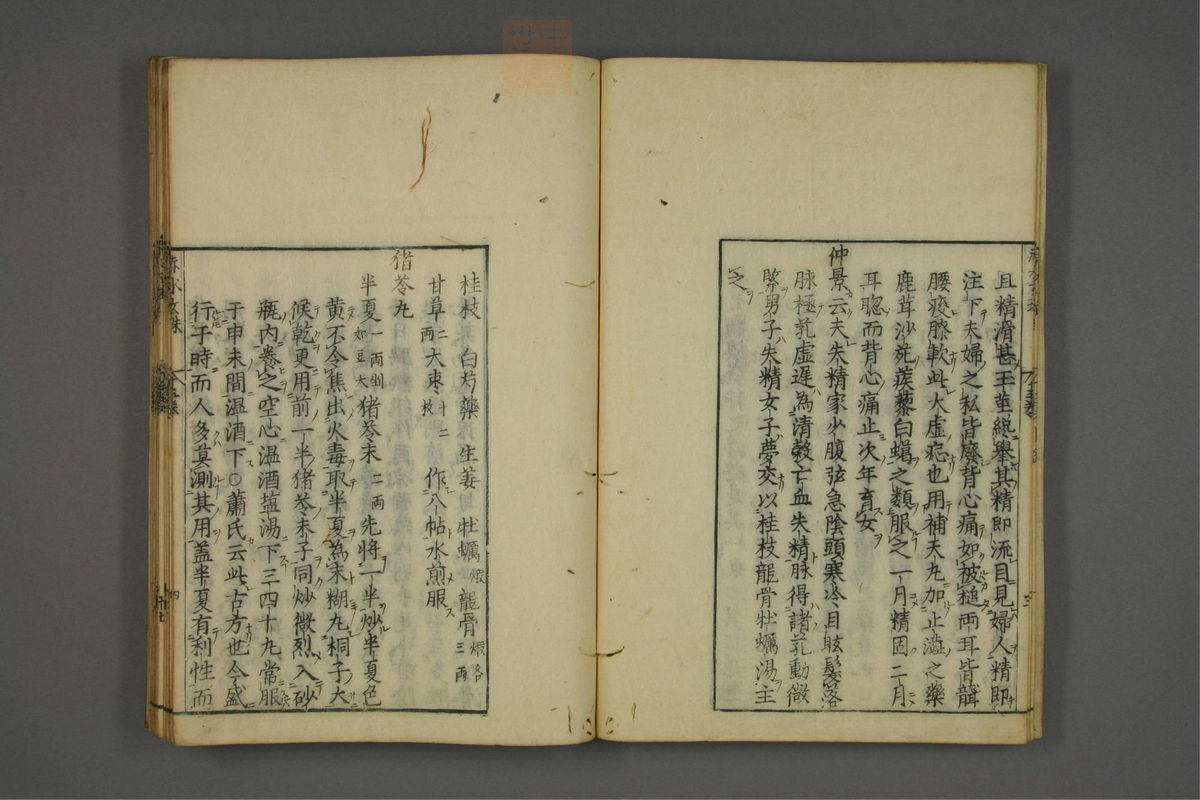 且精滑甚王莖縱舉其精即流目見婦人精即
注下夫婦之私皆廢背心痛如被搥両耳皆聾
腰痠膝軟此大虚疮也用補天丸加止澁之藥
鹿茸沙苑蒺藜白蝎之類服之一月精固二月
耳聡而背心痛止次年育女
仲景云夫失精家少腹弦急陰頭寒冷目眩髮落
脉極芤虚遅為清榖亡血失精脉得諸芤動微
緊男子失精女子夢交以桂枝龍骨牡蠣湯主
之
桂枝 白芍藥 生姜 牡蠣煅 龍骨煅各三両
甘草二両 大枣十二枚 作八帖水煎服
猪苓丸
半夏一両剉如豆大 猪苓末二両 先將一半炒半夏色
黄不令焦出火毒取半夏為末糊丸桐子大
候乾更用前一半猪苓末子同炒微烈入砂
瓶内養之空心温酒塩湯下三四十丸常服
于申未間温酒下○蕭氏云此古方也今盛
行于時而人多莫測其用盖半夏有利性而